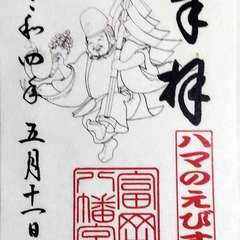 奉拝
ハマのえびす
富岡
八幡宮
令和四年五月十一日